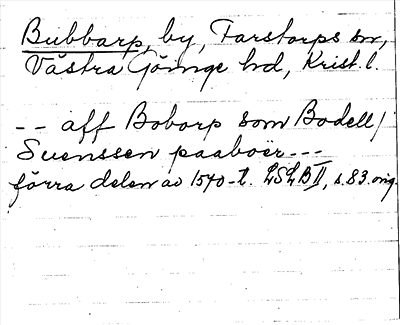 Bubbarp, by, Farstorps sn,
Västra Göinge hd, Krist. l.
-- aff Boborp som Bodell /
Suenssen paaboer ---
förra delen av 1540-t. LSLB II, s. 83. orig.